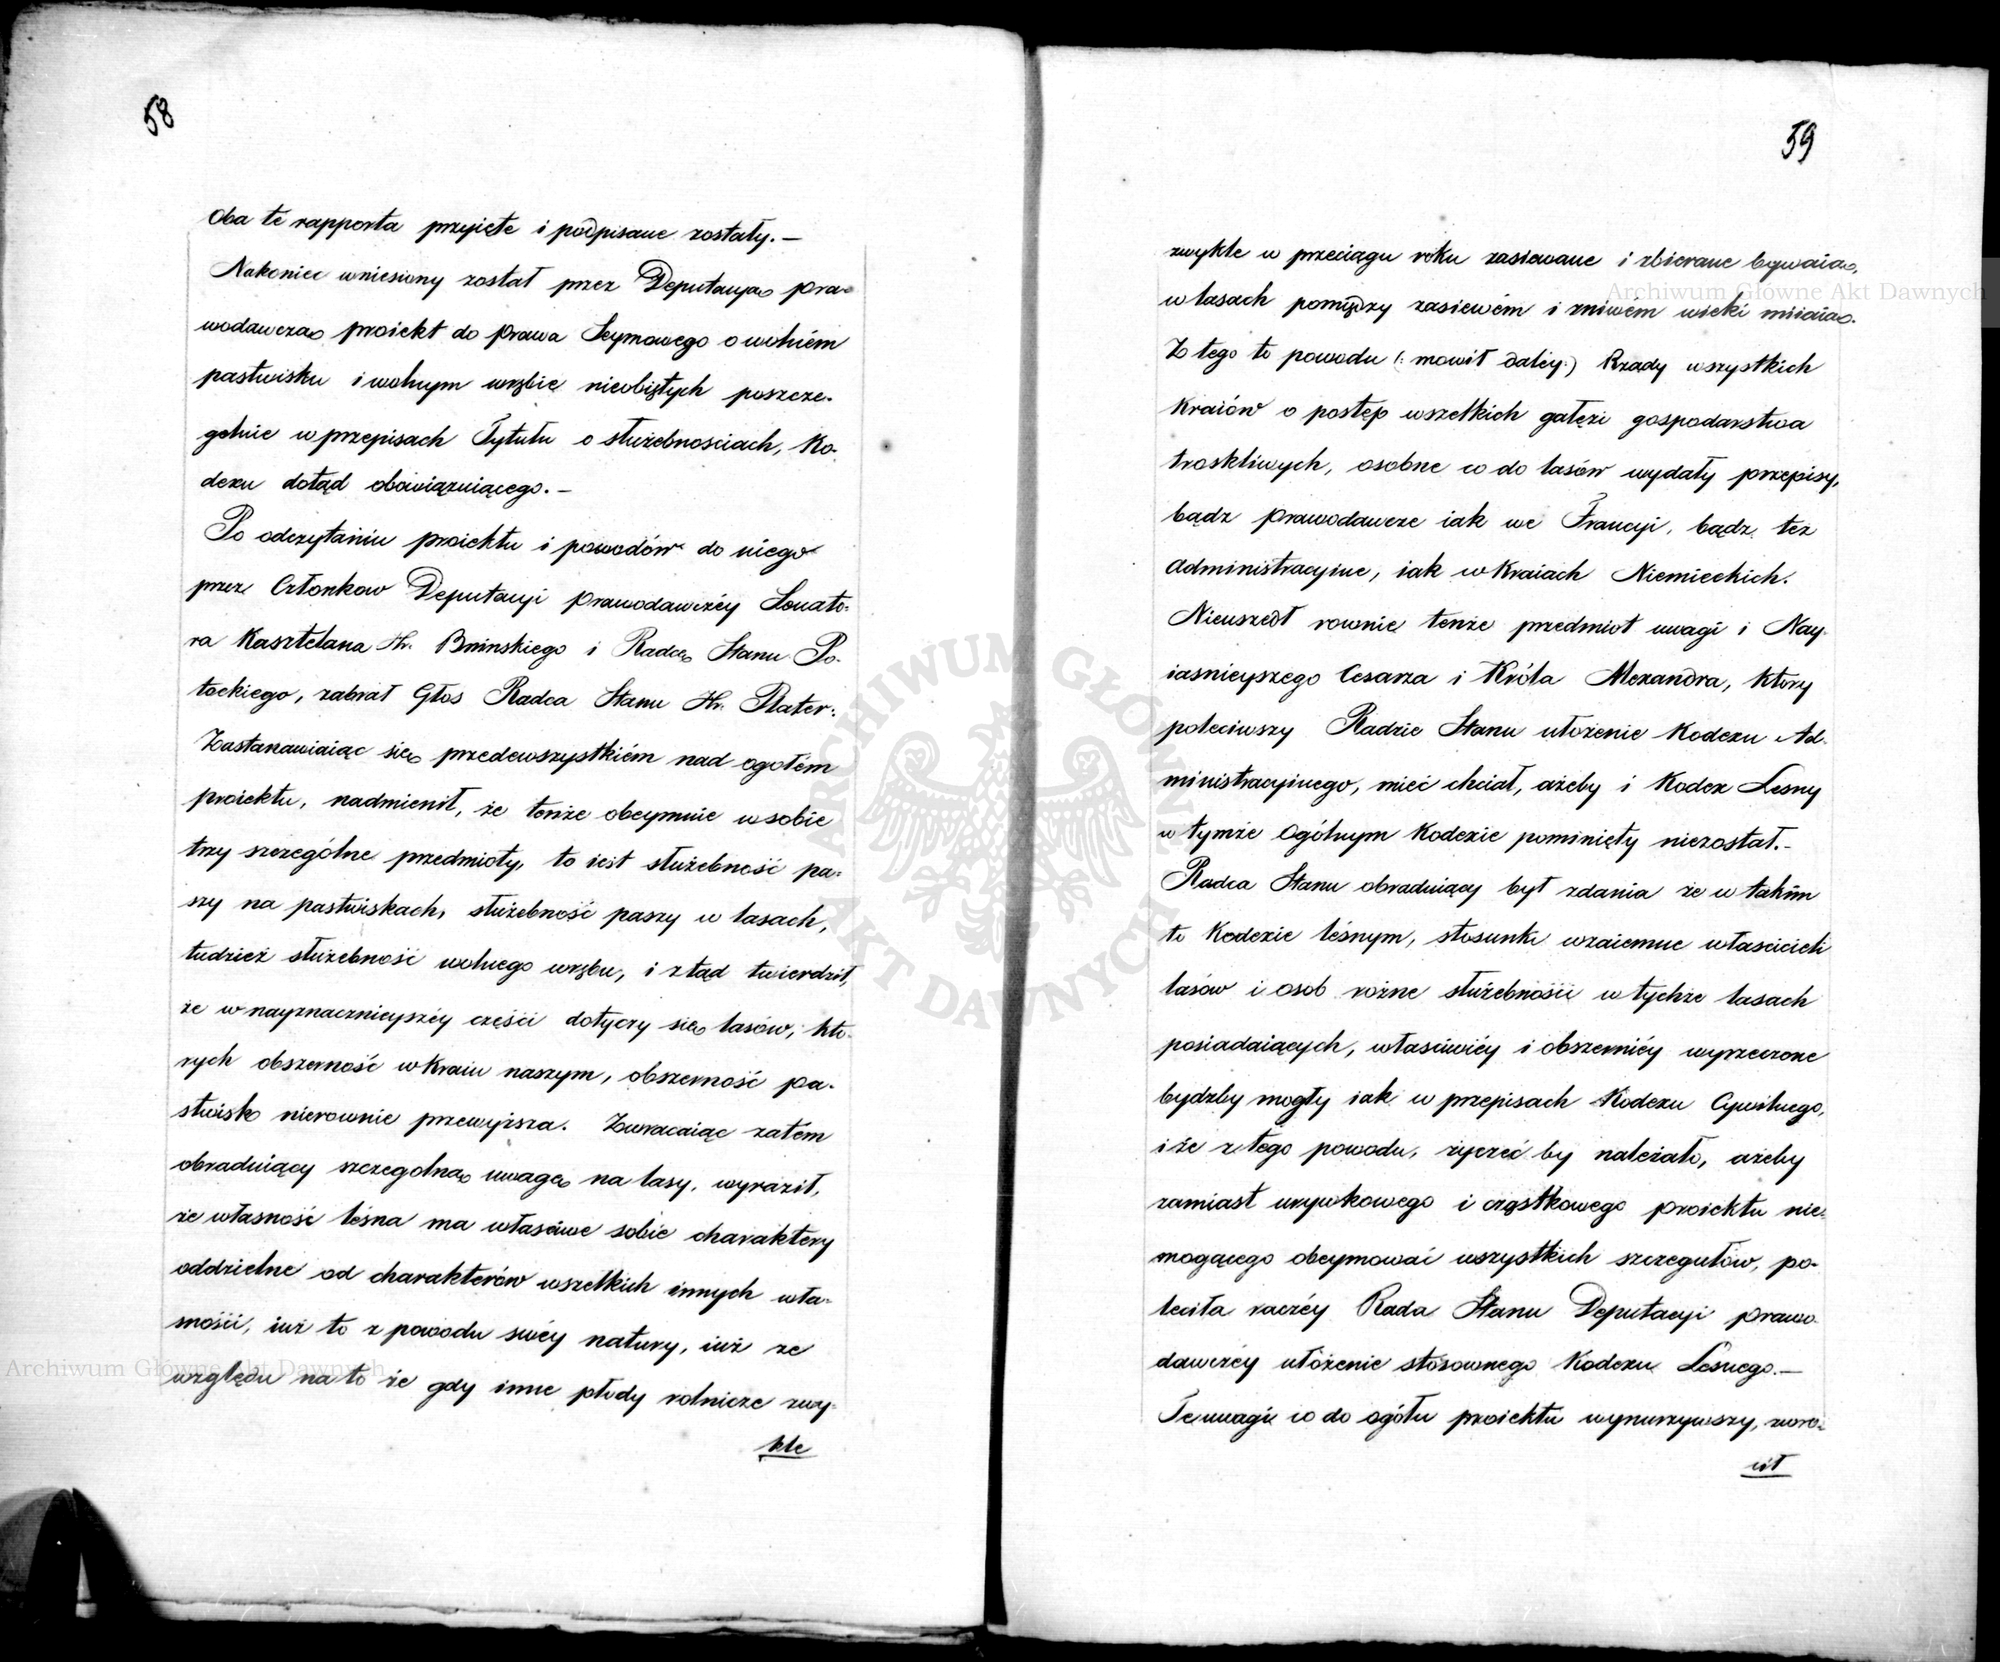 58
Oba te rapporta przyięte i podpisane zostały.—
Nakoniec wniesiony został przez Deputacyą pra-
wodawczą proiekt do prawa Seymowego o wolném
pastwisku i wolnym wrębie nieobiętych poszcze-
gelnie w przepisach Tytułu o służebnosciach, Ko-
dexu dotąd obowiązuiącego.—
Po odczytaniu proiektu i powodów do niego
przez Członkow Deputacyi prawodawczéy Senato-
ra Kasztelana Hr. Bninskiego i Radcę Stanu Po-
tockiego, zabrał Głos Radca Stanu Hr. Plater.
Zastanawiaiąc się przedewszystkiém nad ogołem
proiektu, nadmienił, że tenże obeymuie w sobie
trzy szczególne przedmioty, to iest służebność pa-
szy na pastwiskach, służebność paszy w lasach,
tudzież służebność wolnego wrębu, i ztąd twierdził,
że w nayznacznieyszéy części dotyczy się lasów, któ-
rych obszerność w kraiu naszym, obszerność pa-
stwisk nierownie przewyższa. Zwracaiąc zatém
obraduiący szczegolną uwagę na lasy, wyraził,
że własność leśna ma właściwe sobie charaktery
oddzielne od charakterów wszelkich innych wła-
sności, iuż to z powodu swéy natury, iuż ze
względu na to że gdy inne płody rolnicze zwy-
kle
59
zwykle w przeciągu roku zasiewane i zbierane bywaią,
w lasach pomiędzy zasiewém i zniwém wieki miiaią.
Z tego to powodu (: mowił daléy:) Rządy wszystkich
Kraiów o postęp wszelkich gałęzi gospodarstwa
troskliwych, osobne co do lasów wydały przepisy,
bądz prawodawcze iak we Francyi, bądz też
administracyine, iak w Kraiach Niemieckich.
Nieuszedł rownie tenże przedmiot uwagi i Nay-
iasnieyszego Cesarza i Króla Alexandra, który
poleciwszy Radzie Stanu ułożenie Kodexu Ad-
ministracyinego, mieć chciał, ażeby i Kodex Lesny
w tymże Ogólnym Kodexie pominięty niezostał.—
Radca Stanu obraduiący był zdania że w takim
to Kodexie leśnym, stosunki wzaiemne właścicieli
lasów i osob rożne służebności w tychże lasach
posiadaiących, właściwiéy i obszerniéy wyrzeczone
bydzby mogły iak w przepisach Kodexu Cywilnego,
i że z tego powodu, życzeć by należało, ażeby
zamiast urywkowego i cząstkowego proiektu nie-
mogącego obeymować wszystkich szczegułów, po-
leciła raczéy Rada Stanu Deputacyi prawo-
dawczéy ułożenie stósownego Kodexu Lesnego.—
Te uwagi co do ogółu proiektu wynurzywszy, zwro-
cił
Archiwum Główne Akt Dawnych
Archiwum Główne Akt Dawnych
ARCHIWUM GŁÓWNE AKT DAWNYCH